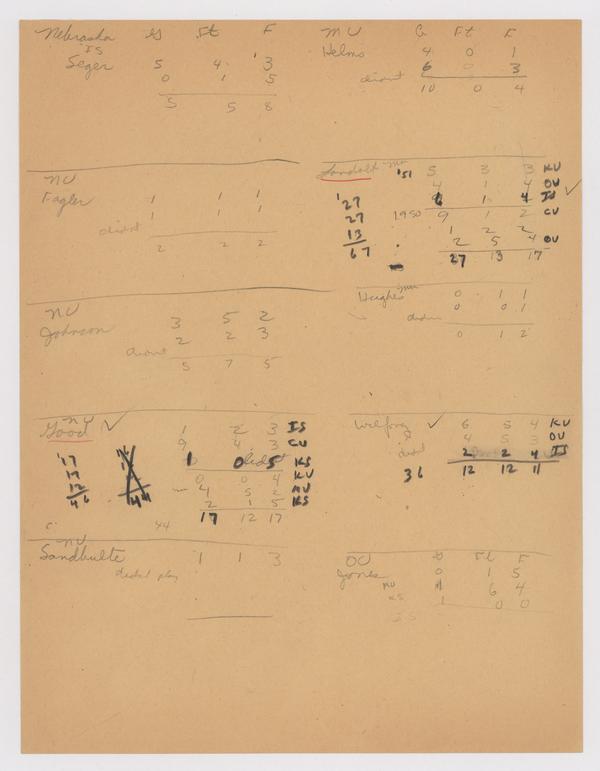 Nebraska G Ft F
IS
Seger 5 4 3
0 1 5
5 5 8
MU G Ft F
Helms 4 0 1
6 0 3
didnt
10 0 4
NU
Fagler 1 1 1
1 1 1
didnt
2 2 2
'51 5 3 3 KU
4 1 4 OU
'27 6 1 4 IS ✓
27 1950 9 1 2 CU
1 2 2
13 2 5 4 OU
67 27 13 17
NU
Johnson 3 5 2
2 2 3
didnt
5 7 5
Hughes MU 0 1 1
0 0 1
didnt
0 1 2
NU
Good ✓ 1 2 3 IS
9 4 3 CU
'17 1 0 5 KS
17 0 0 4 KU
12 4 5 2 MU
46 44 2 1 5 KS
17 12 17
44
Wilfong ✓ 6 5 4 KU
4 5 3 OU
didnt
2 2 4 IS
36 12 12 11
NU
Sandbulte 1 1 3
didnt play
OU G Ft F
Jones 0 1 5
MU 1 6 4
KS 1 0 0
IS